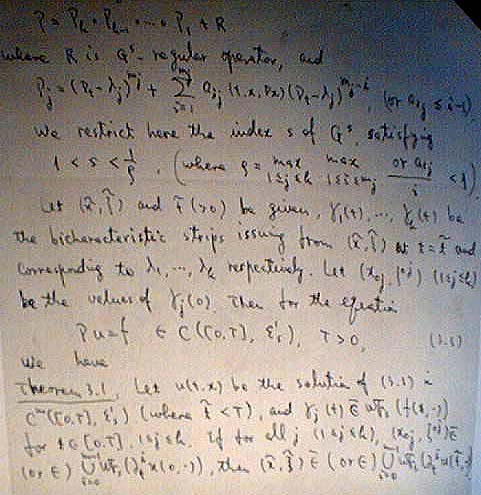 P = P_k · P_{k-1} · ... · P_1 + R
where R is G^s-regular operator, and
P_j = (D_t - λ_j)^{m_j} + Σ_{i=1}^{m_j} a_{ij} (t, x, D_x)(D_t - λ_j)^{m_j-i}, (or a_{ij} ≤ i-1)
We restrict here the index s of G^s, satisfying
1 < s < 1/ρ, (where ρ = max_{1≤j≤k} max_{1≤i≤m_j} or a_{ij}/i < 1).
Let (x̂, ξ̂) and t̂ (>0) be given, γ_1(t), ..., γ_k(t) be
the bicharacteristic strips issuing from (x̂, ξ̂) at t = t̂ and
corresponding to λ_1, ..., λ_k respectively. Let (x_{0j}, ξ^{0j}) (1≤j≤k)
be the values of γ_j(0). Then for the equation
Pu = f ∈ C([0,T], ε'_s), T > 0,
we have
Theorem 3.1. Let u(t,x) be the solution of (3.1) in
C^m([0,T], ε'_s) (where t̂ < T), and γ_j(t) ∉ WF_s(f(t,·))
for t ∈ [0,T], 1≤j≤k. If for all j (1≤j≤k), (x_{0j}, ξ^{0j}) ∉
(or ∈) ∪_{i=0}^{m-1} WF_s(∂_t^i u(0,·)), then (x̂, ξ̂) ∉ (or ∈) ∪_{i=0}^{m-1} WF_s(∂_t^i u(t̂,·))